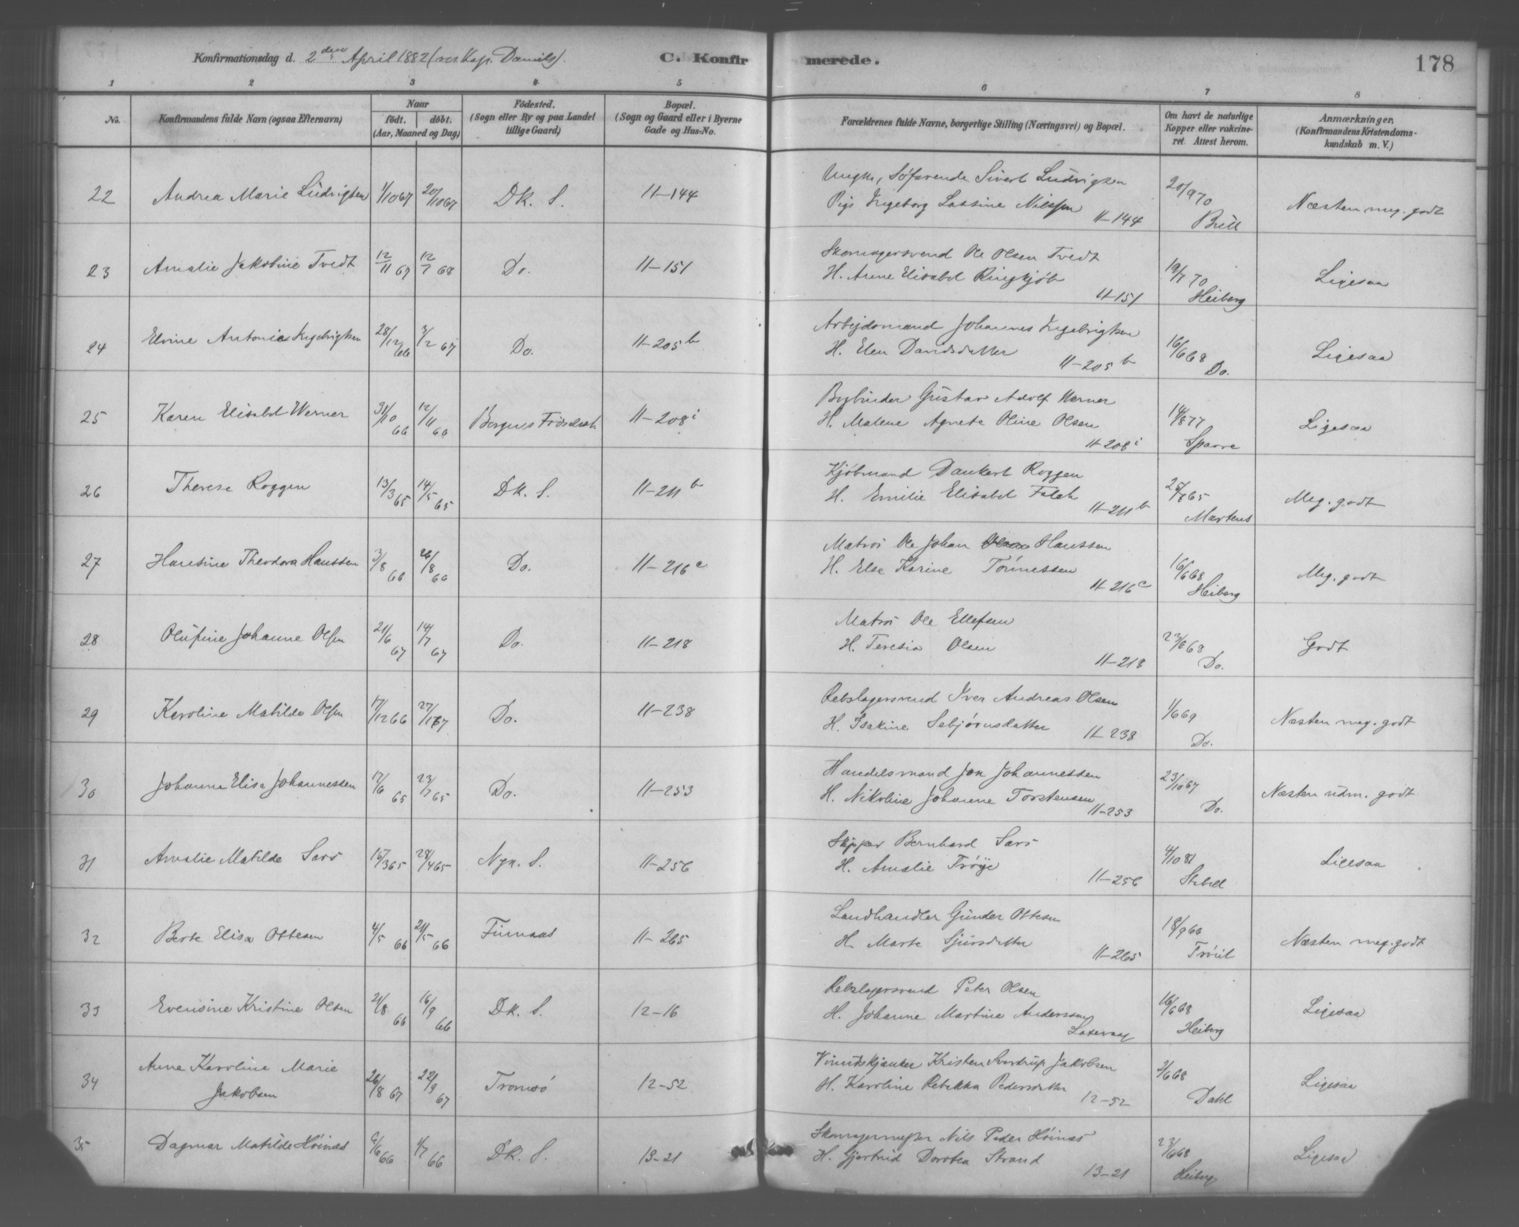 Konfirmationsdag d. 2den April 1882 C. Konfirmerede. 178
1 2 3 4 5 6 7 8
No. Konfirmandens fulde Navn (ogsaa Efternavn) Naar født. døbt. (Aar, Maaned og Dag) Fødested. (Sogn eller By og paa Landet tillige Gaard) Bopæl. (Sogn og Gaard eller i Byerne Gade og Hus-No. Forældrenes fulde Navne, borgerlige Stilling (Næringsvei) og Bopæl. Om havt de naturlige Kopper eller vakcineret. Attest herom. Anmærkninger. (Konfirmandens Kristendomskundskab m. V.)
22 Andrea Marie Ludvigsen 1/10 67 20/10 67 DK. S. 11-144 Ungk. Søfarende Sivert Ludvigsen
Pige Ingeborg Lassine Nilssen 11-144 20/9 70 Næsten meg. godt
23 Amalie Jakobine Tvedt 12/11 67 12/7 68 Do. 11-151 Skomagersvend Ole Olsen Tvedt
H. Anne Elisabet 11-151 19/7 70 Heiberg Ligesaa
24 Elvine Antonie Ingebrigtsen 28/12 66 3/2 67 Do. 11-205 b Arbejdsmand Johannes Ingebrigtsen
H. Elen Davidsdatter 11-205 b 16/6 68 Do. Ligesaa
25 Karen Elisabet Werner 31/10 66 12/11 66 11-208 i Bogbinder Gustav Adolf Werner
H. Malene Agnete Oline Olsen 11-208 i 14/8 77 Sparre Ligesaa
26 Therese Roggen 13/3 65 14/5 65 DK. S. 11-211 b Kjøbmand Dankert Roggen
H. Emilie Elisabet Falch 11-211 b Martens Meg. godt
27 Hansine Theodora Hanssen 3/8 66 26/8 66 Do. 11-216 c Matros Ole Johan Hanssen
H. Else Karine Tönnessen 11-216 c 16/6 68 Heiberg Meg. godt
28 Olufine Johanne Olsen 21/6 67 14/7 67 Do. 11-218 Matros Ole Ellefsen
H. Teresia Olsen 11-218 Do. Godt
29 Karoline Matilde Olsen 17/12 66 27/1 67 Do. 11-238 Rebslagersvend Iver Andreas Olsen
H. Isakine 11-238 1/6 69 Do. Næsten meg. godt
30 Johanne Elisa Johannessen 17/6 65 23/7 65 Do. 11-253 Handelsmand Jon Johannessen
H. Nikoline Johanne Torstensen 11-253 23/10 67 Do. Næsten udm. godt
31 Amalie Matilde Sars 15/3 65 28/4 65 Nyk. S. 11-256 Skipper Bernhard Sars
H. Amalie Trøye 11-256 4/10 81 Ligesaa
32 Berte Elisa Ottesen 4/5 66 20/5 66 Finnaas 11-265 Landhandler Gunder Ottesen
H. Marte Sjursdatter 11-265 18/9 Næsten meg. godt
33 Evensine Kristine Olsen 21/8 66 16/9 66 DK. S. 12-16 Rebslagersvend Peter Olsen
H. Johanne Martine Anderssen
Laxevaag 16/6 68 Heiberg Ligesaa
34 Anne Karoline Marie
Jakobsen 26/8 67 22/9 67 Tromsö 12-52 Kristen Sverdrup Jakobsen
H. Karoline Rebekka Pedersdatter 12-52 3/6 68 Dahl Ligesaa
35 Dagmar Matilde Høinæs 6/6 66 1/7 66 DK. S. 13-21 Skomagermester Nils Peder Høinæs
H. Gjertrud Dorotea Strand 13-21 23/6 68 Heiberg Ligesaa